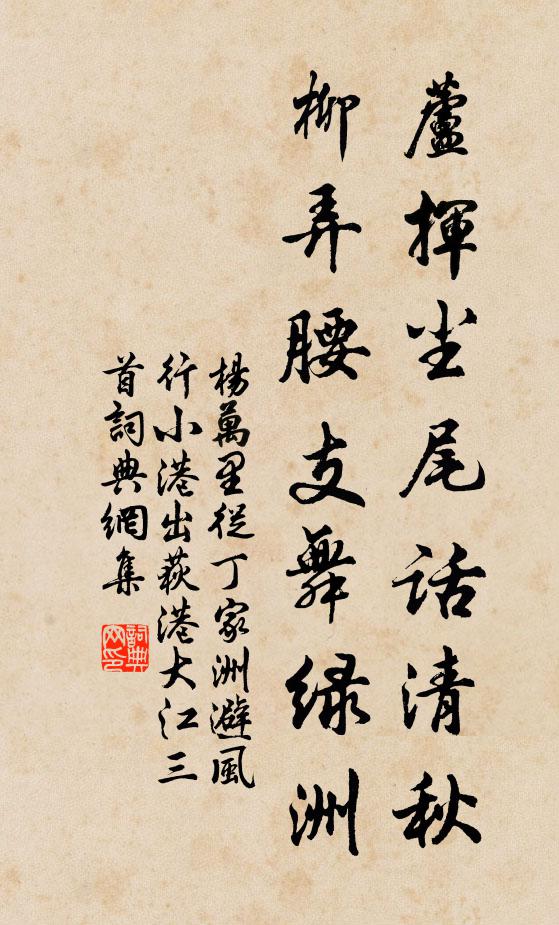 蘆揮尘尾話清秋
柳弄腰支舞绿洲
楊萬里從丁家洲避風
行小港出荻港大江三
首詞典網集
詞典
网印